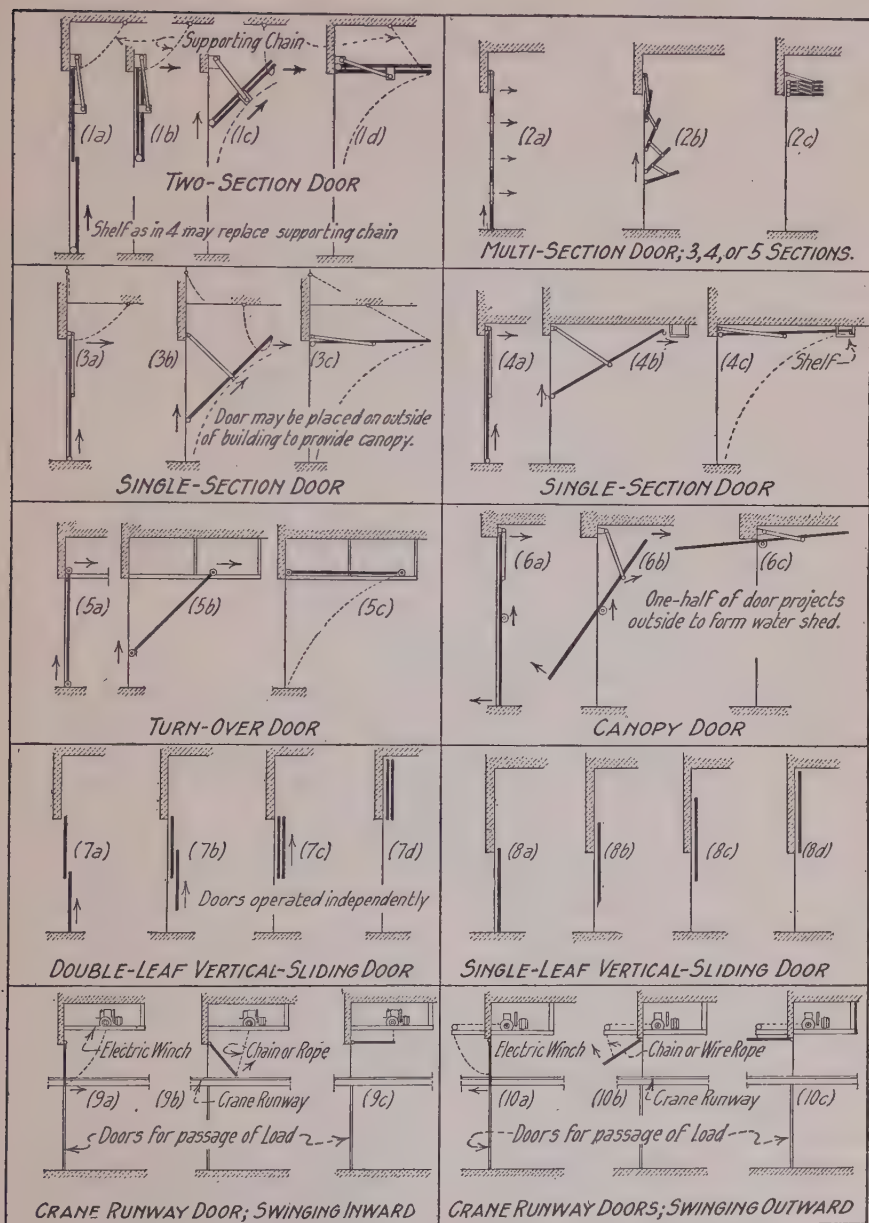 Supporting Chain
(1a) (1b) (1c) (1d)
TWO-SECTION DOOR
Shelf as in 4 may replace supporting chain
(2a) (2b) (2c)
MULTI-SECTION DOOR; 3, 4, OR 5 SECTIONS.
(3a) (3b) (3c)
Door may be placed on outside
of building to provide canopy.
SINGLE-SECTION DOOR
(4a) (4b) (4c)
Shelf
SINGLE-SECTION DOOR
(5a) (5b) (5c)
TURN-OVER DOOR
(6a) (6b) (6c)
One-half of door projects
outside to form water shed.
CANOPY DOOR
(7a) (7b) (7c) (7d)
Doors operated independently
DOUBLE-LEAF VERTICAL-SLIDING DOOR
(8a) (8b) (8c) (8d)
SINGLE-LEAF VERTICAL-SLIDING DOOR
Electric Winch Chain or Rope
(9a) (9b) Crane Runway (9c)
Doors for passage of Load
CRANE RUNWAY DOOR; SWINGING INWARD
Electric Winch Chain or Wire Rope
(10a) (10b) Crane Runway (10c)
Doors for passage of Load
CRANE RUNWAY DOORS; SWINGING OUTWARD